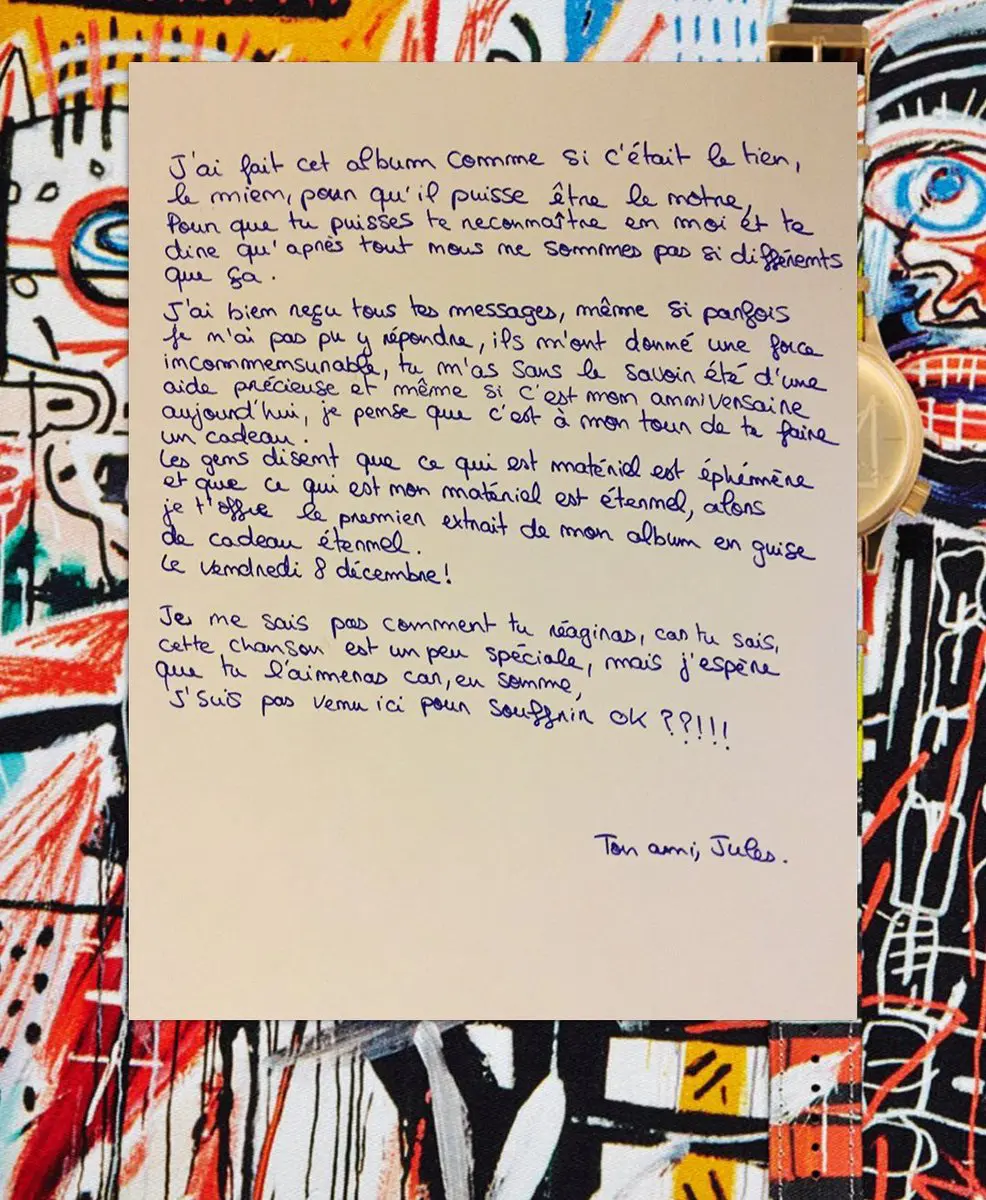 J'ai fait cet album comme si c'était le tien,
le mien, pour qu'il puisse être le notre,
Pour que tu puisses te reconnaître en moi et te
dire qu'après tout nous ne sommes pas si différents
que ça.
J'ai bien reçu tous tes messages, même si parfois
je n'ai pas pu y répondre, ils m'ont donné une force
incommensurable, tu m'as sans le savoir été d'une
aide précieuse et même si c'est mon anniversaire
aujourd'hui, je pense que c'est à mon tour de te faire
un cadeau.
Les gens disent que ce qui est matériel est éphémère
et que ce qui est non matériel est éternel, alors
je t'offre le premier extrait de mon album en guise
de cadeau éternel.
Le vendredi 8 décembre!
Je ne sais pas comment tu réagiras, car tu sais,
cette chanson est un peu spéciale, mais j'espère
que tu l'aimeras car, en somme,
J'suis pas venu ici pour souffrir ok ??!!!
Ton ami, Jules.